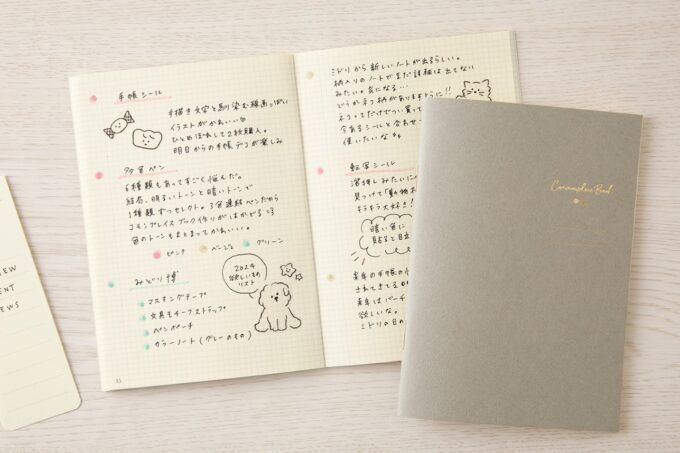 手帳シール
手描き文字と馴染む線画っぽい
イラストがかわいい
ひとめぼれして2枚購入。
明日からの手帳デコが楽しみ
多色ペン
6種類もあってすごく悩んだ。
結局、明るいトーンと暗いトーンで
1種類ずつセレクト。3色連結ペンだから
コモンプレイスブック作りがはかどる
色のトーンもまとまってかわいい。
ピンク ベージュ グリーン
みどり博
マスキングテープ
文具モチーフストラップ
ペンポーチ
カラーノート(グレーのもの)
2024
欲しいもの
リスト
33
ミドリから新しいノートが出るらしい。
柄入りのノートでまだ詳細は出てない
みたい。気になる…
どうかネコ柄がありますように!!
ネコってだけでつい買って
今あるシールと合わせ
使いたいな
転写シール
箔押しみたいに
見つけて「動物
キラキラ大好き!
暗い色に
貼ると目立
来年の手帳の
されてきてる
来年はバーチ
欲しいな。
ミドリの日の
Commonplace Book
EW
ENT
EWS